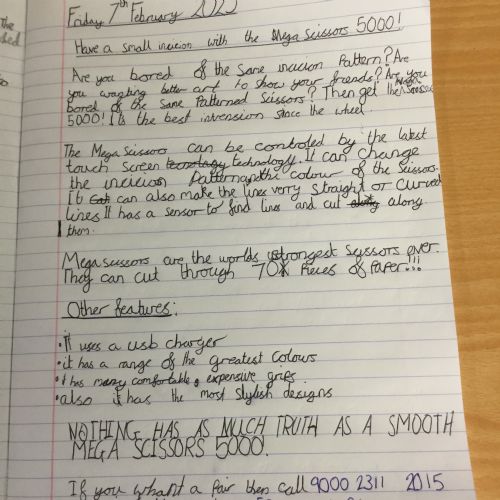 Friday 7th February
Have a small incicion with the Mega Scissors 5000!
Are you bored of the same incicion Pattern? Are
you wanting better art to show your friends? Are you
bored of the same Patterned Scissors? Then get the Mega
5000! It is the best intvension since the wheel.
The Mega Scissors can be controled by the latest
touch screen technology. It can change
the incicion Pattern and the colour of the Scissors.
It can also make the lines verry straight or curved
lines. It has a sensor to find lines and cut along
them.
Mega scissors are the worlds strongest scissors ever.
They can cut through 70 Pieces of Paper!!!
Other features:
• It uses a usb charger
• it has a range of the greatest colours
• it has many comfortable, expensive grips
• also it has the most stylish designs
NOTHING HAS AS MUCH TRUTH AS A SMOOTH
MEGA SCISSORS 5000.
If you whant a pair then call 9000 2311 2015